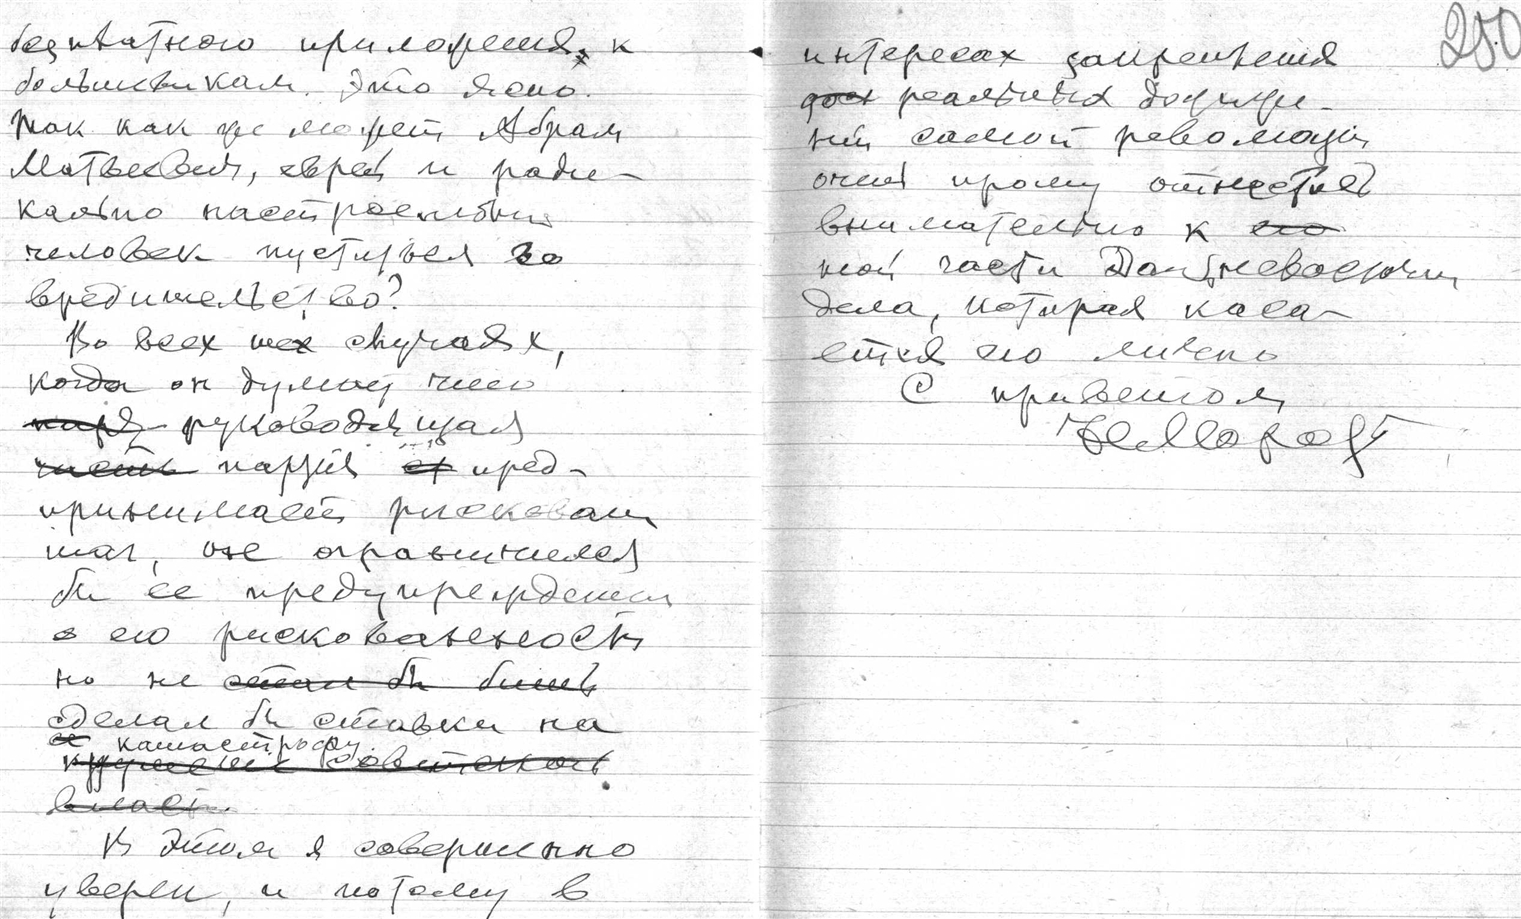 к
большевикам. Это ясно.
Так как же может Абрам
Матвеевич, еврей и ради-
кально настроенный
человек пуститься во
вредительство?
Во всех тех случаях,
когда он думает что
руководящая
часть партия пред-
принимает рискован
шаг, он ограничился
бы ее предупреждением
о его рискованности
но не стал бы бить
сделал бы ставки на
катастрофу.
крушение советской
власти.
В этом я совершенно
уверен, и потому в
250
интересах
реальных
ний самой революции
очень прошу отнестись
внимательно к его
той части
дела, которая каса-
ется его лично
С приветом